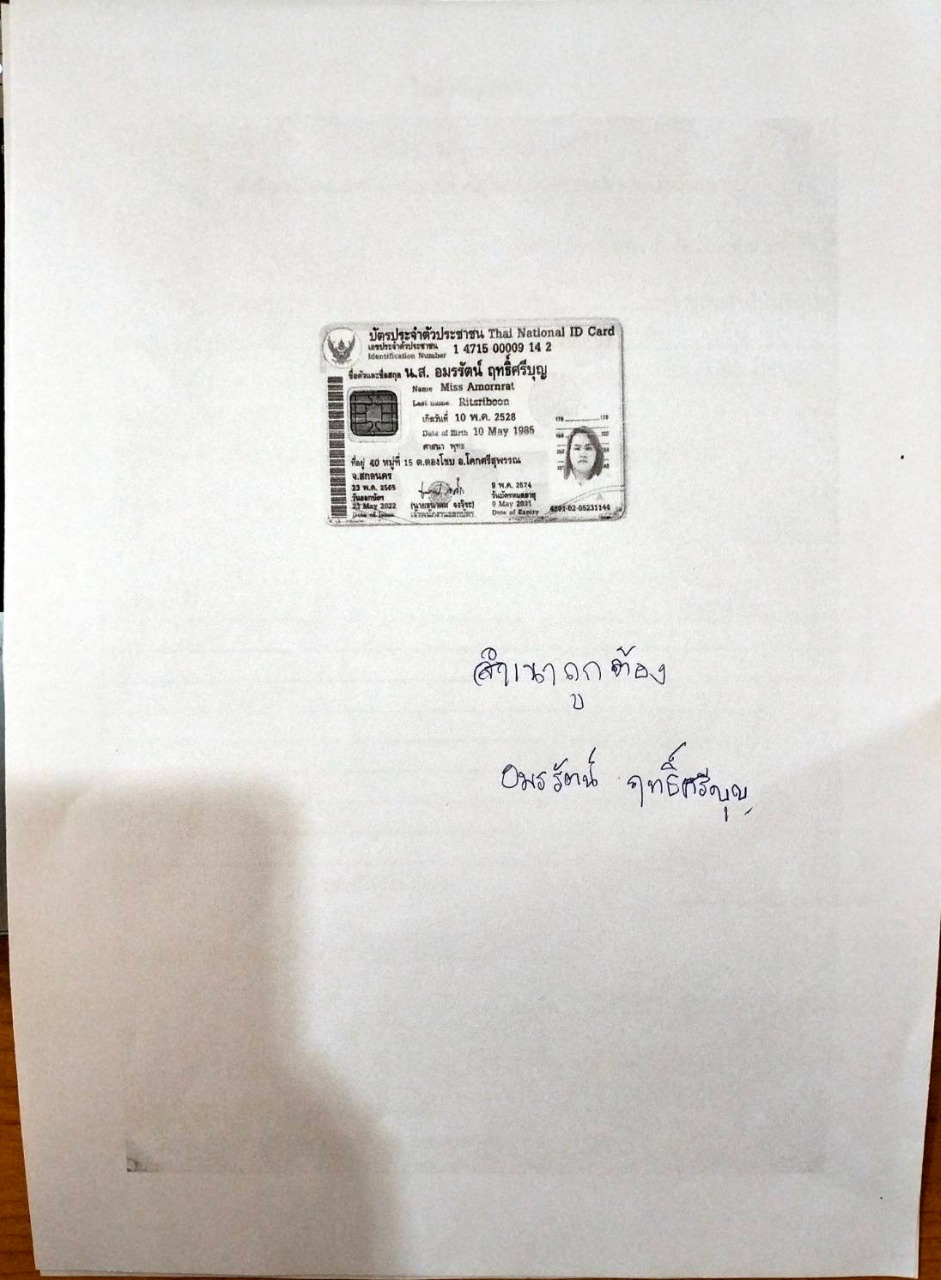 บัตรประจำตัวประชาชน Thai National ID Card
เลขประจำตัวประชาชน
Identification Number
1 4715 00009 14 2
ชื่อตัวและชื่อสกุล น.ส. อมรรัตน์ ฤทธิ์ศรีบุญ
Name Miss Amornrat
Last name Ritsriboon
เกิดวันที่ 10 พ.ค. 2528
Date of Birth 10 May 1985
ศาสนา พุทธ
ที่อยู่ 40 หมู่ที่ 15 ต.ตองโขบ อ.โคกศรีสุพรรณ
จ.สกลนคร
23 พ.ค. 2565
วันออกบัตร
23 May 2022
Date of Issue
เจ้าพนักงานออกบัตร
9 พ.ค. 2574
วันบัตรหมดอายุ
9 May 2031
Date of Expiry
สำเนาถูกต้อง
อมรรัตน์ ฤทธิ์ศรีบุญ